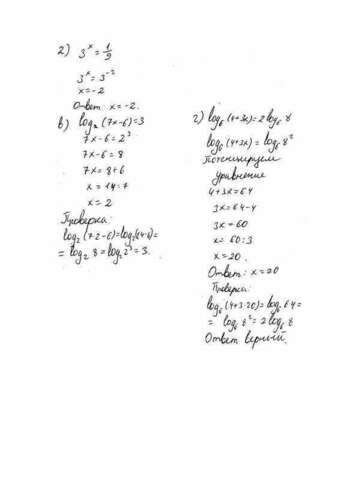 2) 3^x = 1/9
3^x = 3^-2
x = -2
Ответ: x = -2.
в) log₂ (7x-6) = 3
7x-6 = 2³
7x-6 = 8
7x = 8+6
x = 14:7
x = 2
Проверка:
log₂ (7·2-6) = log₂(14-6) =
= log₂ 8 = log₂ 2³ = 3.
г) log₆ (4+3x) = 2 log₆ 8
log₆ (4+3x) = log₆ 8²
Потенцируем
уравнение
4+3x = 64
3x = 64-4
3x = 60
x = 60:3
x = 20.
Ответ: x = 20
Проверка:
log₆ (4+3·20) = log₆ 64 =
= log₆ 8² = 2 log₆ 8
Ответ верный.